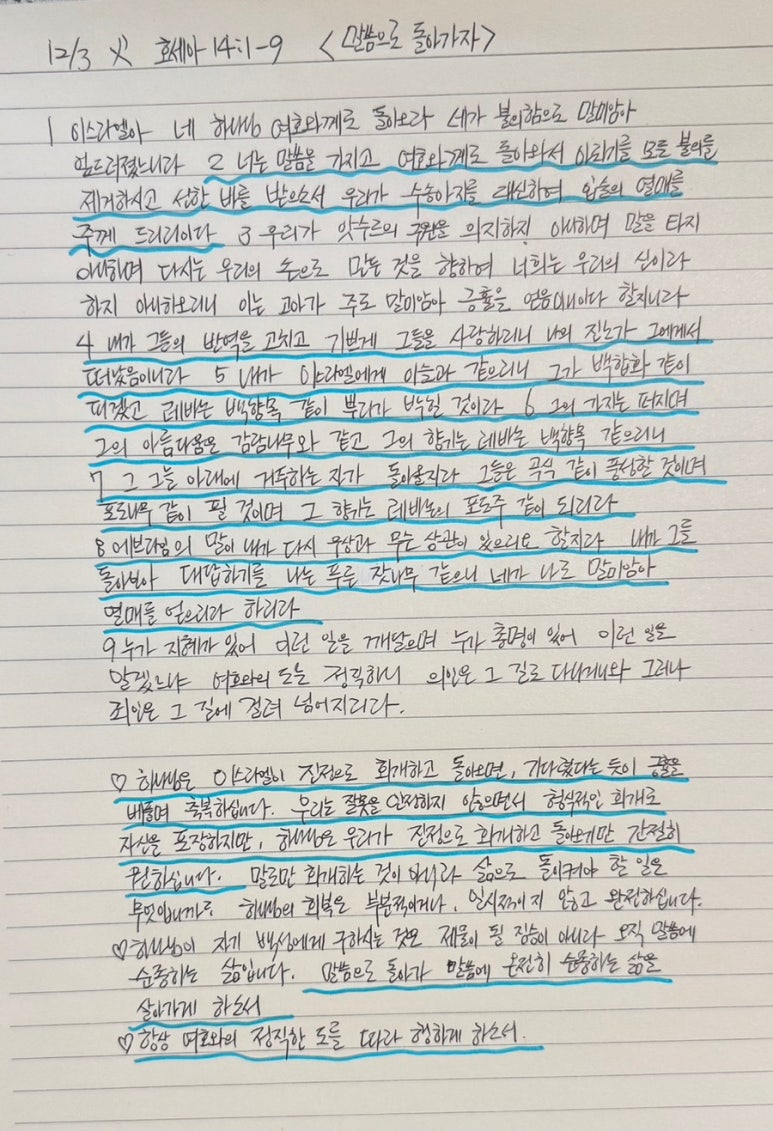 12/3 火 호세아 14:1-9 <말씀으로 돌아가자>
1 이스라엘아 네 하나님 여호와께로 돌아오라 네가 불의함으로 말미암아
엎드러졌느니라 2 너는 말씀을 가지고 여호와께로 돌아와서 아뢰기를 모든 불의를
제거하시고 선한 바를 받으소서 우리가 수송아지를 대신하여 입술의 열매를
주께 드리리이다 3 우리가 앗수르의 구원을 의지하지 아니하며 말을 타지
아니하며 다시는 우리의 손으로 만든 것을 향하여 너희는 우리의 신이라
하지 아니하오리니 이는 고아가 주로 말미암아 긍휼을 얻음이니이다 할지니라
4 내가 그들의 반역을 고치고 기쁘게 그들을 사랑하리니 나의 진노가 그에게서
떠났음이니라 5 내가 이스라엘에게 이슬과 같으리니 그가 백합화 같이
피겠고 레바논 백향목 같이 뿌리가 박힐 것이라 6 그의 가지는 퍼지며
그의 아름다움은 감람나무와 같고 그의 향기는 레바논 백향목 같으리니
7 그 그늘 아래에 거주하는 자가 돌아올지라 그들은 곡식 같이 풍성할 것이며
포도나무 같이 필 것이며 그 향기는 레바논의 포도주 같이 되리라
8 에브라임의 말이 내가 다시 우상과 무슨 상관이 있으리요 할지라 내가 그를
돌아보아 대답하기를 나는 푸른 잣나무 같으니 네가 나로 말미암아
열매를 얻으리라 하리라
9 누가 지혜가 있어 이런 일을 깨달으며 누가 총명이 있어 이런 일을
알겠느냐 여호와의 도는 정직하니 의인은 그 길로 다니거니와 그러나
죄인은 그 길에 걸려 넘어지리라.
♡ 하나님은 이스라엘이 진정으로 회개하고 돌아오면, 기다렸다는 듯이 긍휼을
베풀며 축복하십니다. 우리는 잘못을 인정하지 않으면서 형식적인 회개로
자신을 포장하지만, 하나님은 우리가 진정으로 회개하고 돌아오기만 간절히
원하십니다. 말로만 회개하는 것이 아니라 삶으로 돌이켜야 할 일은
무엇입니까? 하나님의 회복은 부분적이거나, 일시적이지 않고 완전하십니다.
♡ 하나님이 자기 백성에게 구하시는 것은 제물이 될 짐승이 아니라 오직 말씀에
순종하는 삶입니다. 말씀으로 돌아가 말씀에 온전히 순종하는 삶을
살아가게 하소서
♡ 항상 여호와의 정직한 도를 따라 행하게 하소서.